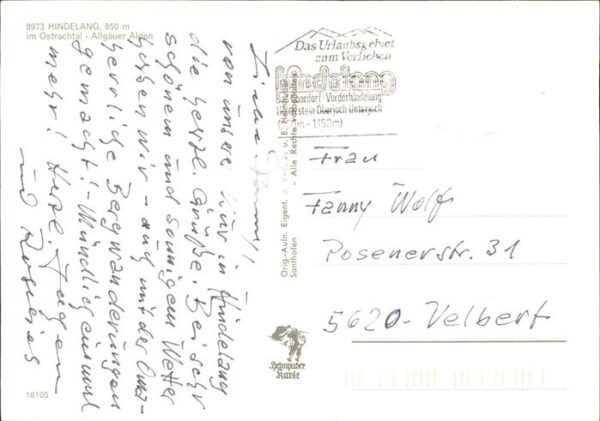 8973 HINDELANG, 850 m
im Ostrachtal - Allgäuer Alpen
Liebe Fanny!
von unserer Kur in Hindelang
die herzl. Grüße. Bei sehr
schönem und sonnigem Wetter
haben wir - auch mit der Oma -
herrliche Bergwanderungen
gemacht! - Mündlich einmal
mehr! Herzl.
und
18105
Das Urlaubsgebiet
zum Verlieben
Hindelang
Bad Oberdorf - Vorderhindelang
Oberjoch Unterjoch
- 1150m)
Orig.-Aufn. Eigent. u.
- Alle Rechte vorbehalten
Sonthofen
Frau
Fanny Wolf
Posenerstr. 31
5620 - Velbert
Karte